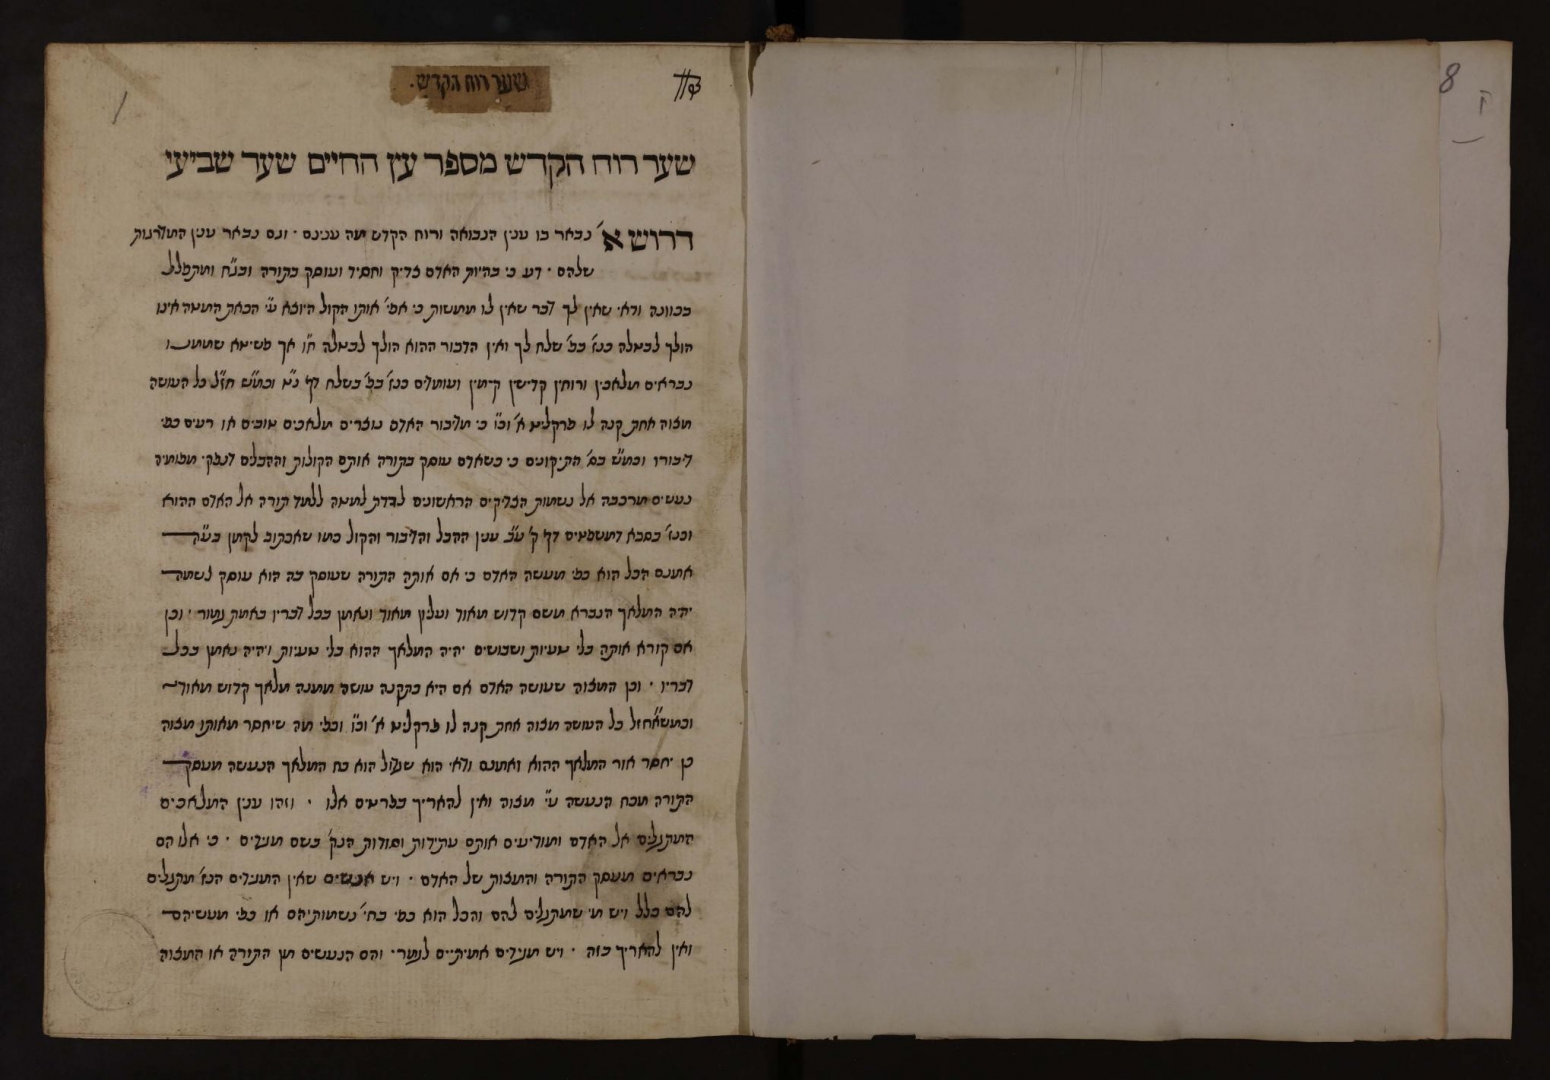 שער רוח הקדש.
1
8
שער רוח הקדש מספר עץ החיים שער שביעי
דרוש א' נבאר בו ענין הנבואה ורוח הקדש מה ענינם · וגם נבאר ענין המדרגות
שלהם · דע כי בהיות האדם צדיק וחסיד ועוסק בתורה ובג"ח ומתפלל
בכוונה ודאי שאין לך דבר שאין לו ממשות כי אפי' אותו הקול היוצא ע"י הכאת המטה אינו
הולך לבטלה כנז' בפ' שלח לך ואין הדבור ההוא הולך לבטלה ח"ו אך פשיטא שממנו
נבראים מלאכין ורוחין קדישין קיימין ועומדים כנז' בפ' בשלח דף נ"ט וכמ"ש חז"ל כל העושה
מצוה אחת קנה לו פרקליט א' וכו' כי מדבור האדם נוצרים מלאכים טובים או רעים כפי
דיבורו וכמ"ש בס' התיקונים כי כשאדם עוסק בתורה אותם הקולות וההבלים דנפקי מפומיה
נעשים מרכבה אל נשמות הצדיקים הראשונים לרדת למטה ללמד תורה אל האדם ההוא
וכנז' בסבא דמשפטים דף ק' ע"ב ענין ההבל והדבור והקול כמו שאכתוב לקמן בע"ה
אמנם הכל הוא כפי מעשה האדם כי אם אותה התורה שעוסק בה הוא עוסק לשמה
יהיה המלאך הנברא משם קדוש מאוד ועליון מאוד ונאמן בכל דבריו באמת גמור · וכן
אם קורא אותה בלי טעיות ושבושים יהיה המלאך ההוא בלי טעיות ויהיה נאמן בכל
דבריו · וכן המצוה שעושה האדם אם היא כתקנה עושה ממנה מלאך קדוש מאוד
וכמשאחז"ל כל העושה מצוה אחת קנה לו פרקליט א' וכו' וכפי מה שיחסר מאותו מצוה
כן יחסר אור המלאך ההוא ואמנם ודאי הוא שגדול הוא כח המלאך הנעשה מעסק
התורה מכח הנעשה ע"י מצוה ואין להאריך בפרטים אלו · וזהו ענין המלאכים
המתגלים אל האדם ומודיעים אותם עתידות וסודות הנק' בשם מגידים · כי אלו הם
נבראים מעסק התורה והמצות של האדם · ויש אנשים שאין המגידים הנז' מתגלים
להם כלל ויש מי שמתגלים להם והכל הוא כפי בחי' נשמותיהם או כפי מעשיהם
ואין להאריך בזה · ויש מגידים אמיתיים לגמרי והם הנעשים מן התורה או המצוה